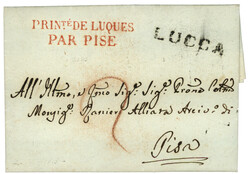 PRINTé DE LUQUES
PAR PISE
LUCCA
All' Illmo, e Rmo Sigr. Sigr. Prone Colmo
Monsigr. Ranieri Alliata Arcivo. di
Pisa